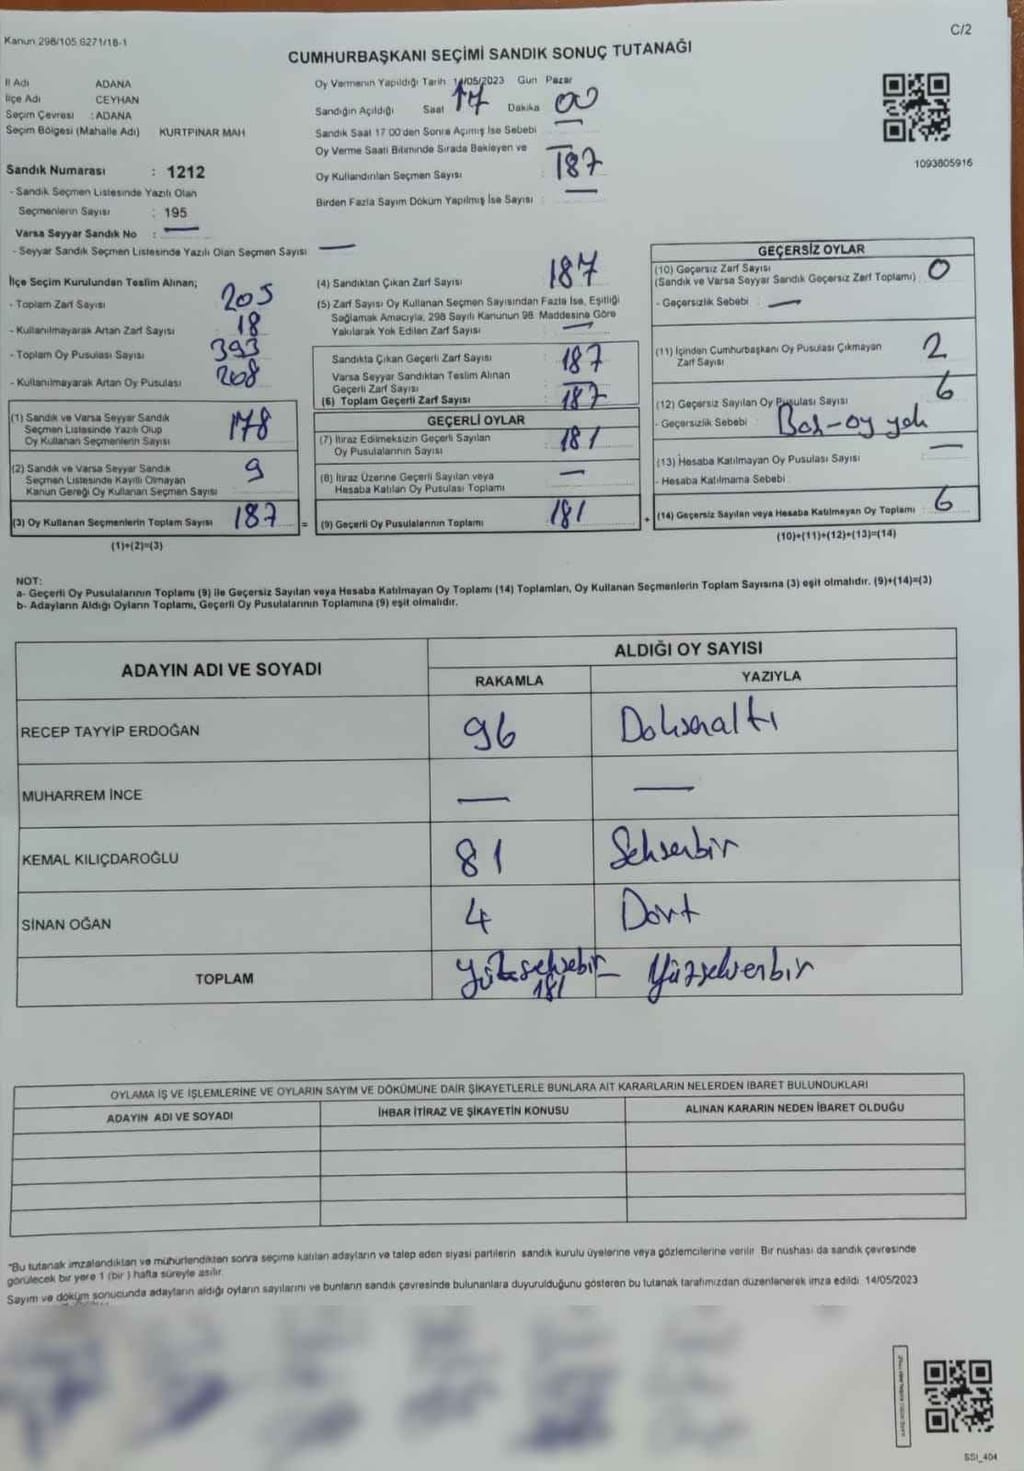 Kanun 298/105 6271/18-1
C/2
CUMHURBAŞKANI SEÇİMİ SANDIK SONUÇ TUTANAĞI
İl Adı ADANA
İlçe Adı CEYHAN
Seçim Çevresi : ADANA
Seçim Bölgesi (Mahalle Adı) KURTPINAR MAH
Sandık Numarası : 1212
- Sandık Seçmen Listesinde Yazılı Olan
Seçmenlerin Sayısı : 195
Varsa Seyyar Sandık No : —
- Seyyar Sandık Seçmen Listesinde Yazılı Olan Seçmen Sayısı —
Oy Vermenin Yapıldığı Tarih 14/05/2023 Gün Pazar
Sandığın Açıldığı Saat 17 Dakika 00
Sandık Saat 17 00'den Sonra Açılmış İse Sebebi —
Oy Verme Saati Bitiminde Sırada Bekleyen ve
Oy Kullandırılan Seçmen Sayısı 187
Birden Fazla Sayım Döküm Yapılmış İse Sayısı —
1093805916
İlçe Seçim Kurulundan Teslim Alınan;
- Toplam Zarf Sayısı 205
- Kullanılmayarak Artan Zarf Sayısı 18
- Toplam Oy Pusulası Sayısı 393
- Kullanılmayarak Artan Oy Pusulası 208
(1) Sandık ve Varsa Seyyar Sandık
Seçmen Listesinde Yazılı Olup
Oy Kullanan Seçmenlerin Sayısı 178
(2) Sandık ve Varsa Seyyar Sandık
Seçmen Listesinde Kayıtlı Olmayan
Kanun Gereği Oy Kullanan Seçmen Sayısı 9
(3) Oy Kullanan Seçmenlerin Toplam Sayısı 187 =
(1)+(2)=(3)
(4) Sandıktan Çıkan Zarf Sayısı 187
(5) Zarf Sayısı Oy Kullanan Seçmen Sayısından Fazla İse, Eşitliği
Sağlamak Amacıyla, 298 Sayılı Kanunun 98. Maddesine Göre
Yakılarak Yok Edilen Zarf Sayısı —
Sandıkta Çıkan Geçerli Zarf Sayısı : 187
Varsa Seyyar Sandıktan Teslim Alınan
Geçerli Zarf Sayısı : —
(6) Toplam Geçerli Zarf Sayısı : 187
GEÇERLİ OYLAR
(7) İtiraz Edilmeksizin Geçerli Sayılan
Oy Pusulalarının Sayısı 181
(8) İtiraz Üzerine Geçerli Sayılan veya
Hesaba Katılan Oy Pusulası Toplamı —
(9) Geçerli Oy Pusulalarının Toplamı 181 +
GEÇERSİZ OYLAR
(10) Geçersiz Zarf Sayısı
(Sandık ve Varsa Seyyar Sandık Geçersiz Zarf Toplamı) 0
- Geçersizlik Sebebi : —
(11) İçinden Cumhurbaşkanı Oy Pusulası Çıkmayan
Zarf Sayısı 2
(12) Geçersiz Sayılan Oy Pusulası Sayısı 6
- Geçersizlik Sebebi : Boş-oy yok
(13) Hesaba Katılmayan Oy Pusulası Sayısı —
- Hesaba Katılmama Sebebi
(14) Geçersiz Sayılan veya Hesaba Katılmayan Oy Toplamı 6
(10)+(11)+(12)+(13)=(14)
NOT:
a- Geçerli Oy Pusulalarının Toplamı (9) ile Geçersiz Sayılan veya Hesaba Katılmayan Oy Toplamı (14) Toplamları, Oy Kullanan Seçmenlerin Toplam Sayısına (3) eşit olmalıdır. (9)+(14)=(3)
b- Adayların Aldığı Oyların Toplamı, Geçerli Oy Pusulalarının Toplamına (9) eşit olmalıdır.
ADAYIN ADI VE SOYADI ALDIĞI OY SAYISI
RAKAMLA YAZIYLA
RECEP TAYYİP ERDOĞAN 96 Doksanaltı
MUHARREM İNCE — —
KEMAL KILIÇDAROĞLU 81 Seksenbir
SİNAN OĞAN 4 Dört
TOPLAM Yüzseksebir Yüzseksenbir
181
OYLAMA İŞ VE İŞLEMLERİNE VE OYLARIN SAYIM VE DÖKÜMÜNE DAİR ŞİKAYETLERLE BUNLARA AİT KARARLARIN NELERDEN İBARET BULUNDUKLARI
ADAYIN ADI VE SOYADI İHBAR İTİRAZ VE ŞİKAYETİN KONUSU ALINAN KARARIN NEDEN İBARET OLDUĞU
"Bu tutanak imzalandıktan ve mühürlendikten sonra seçime katılan adayların ve talep eden siyasi partilerin sandık kurulu üyelerine veya gözlemcilerine verilir. Bir nüshası da sandık çevresinde
görülecek bir yere 1 (bir ) hafta süreyle asılır.
Sayım ve döküm sonucunda adayların aldığı oyların sayılarını ve bunların sandık çevresinde bulunanlara duyurulduğunu gösteren bu tutanak tarafımızdan düzenlenerek imza edildi 14/05/2023
SSI_404